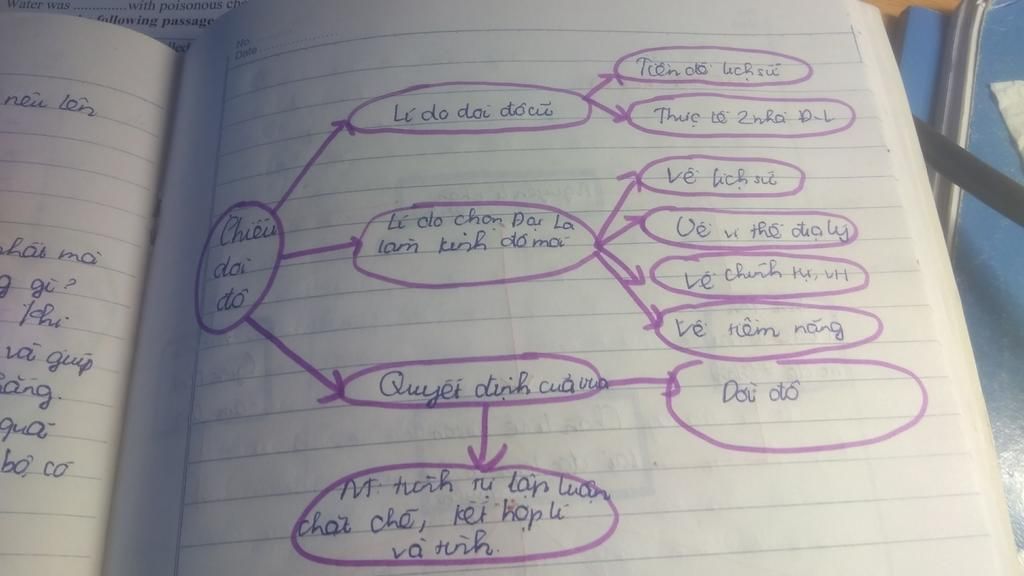 Water was ............. with poisonous
following passage
No
Date
nêu lên
và giúp
Chiếu
dời
đô
Lí do dời đô cũ
Tiền đồ lịch sử
Thực tế 2 nhà Đ-L
Lí do chọn Đại La
làm kinh đô mới
Về lịch sử
Về vị thế địa lý
Về chính trị, VH
Về tiềm năng
Quyết định của vua
Dời đô
NT: trình tự lập luận
chặt chẽ, kết hợp lí
và tình.